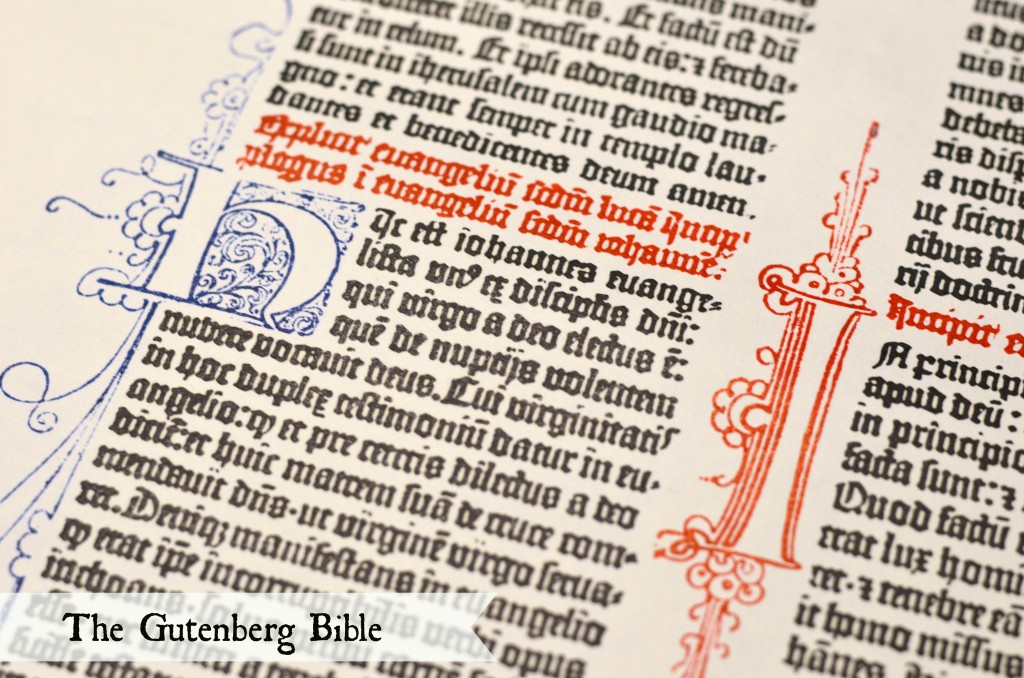 eis. Et factū est dū
illis recessit ab eis: ⁊ fereba-
tur in celum. Et ipsi adorantes regres-
si sunt in iherusalem cum gaudio ma-
gno: et erant semper in templo lau-
dantes et benedicentes deum amen.
Explicit euangeliū scdm lucā Incip'
plogus ī euangeliū scdm iohannē:
Hic est iohannes euange-
lista vn9 ex discipl'is dni:
qui virgo a deo electus ē:
quē de nuptijs volentem
nubere vocauit deus. Cui virginitatis
in hoc duplex testimoniū datur in eu-
angelio: q et pre ceteris dilectus a deo
dicit: et huic matrem suā de cruce com-
mendauit dns. ut virginē virgo serua-
ret. Deniq manifestans in euangelio
q erat ipe incorru
inchoans
opus
a do
nis in
mnes
debeta
ris disp
a nobis
ut scient
cibus fru
rij doctrin
Incipit e
In principi
apud deū:
in principio
facta sunt: ⁊
Quod factū
erat lux homi
ret. ⁊ tenebre eā
it homo missus
hānes.
The Gutenberg Bible